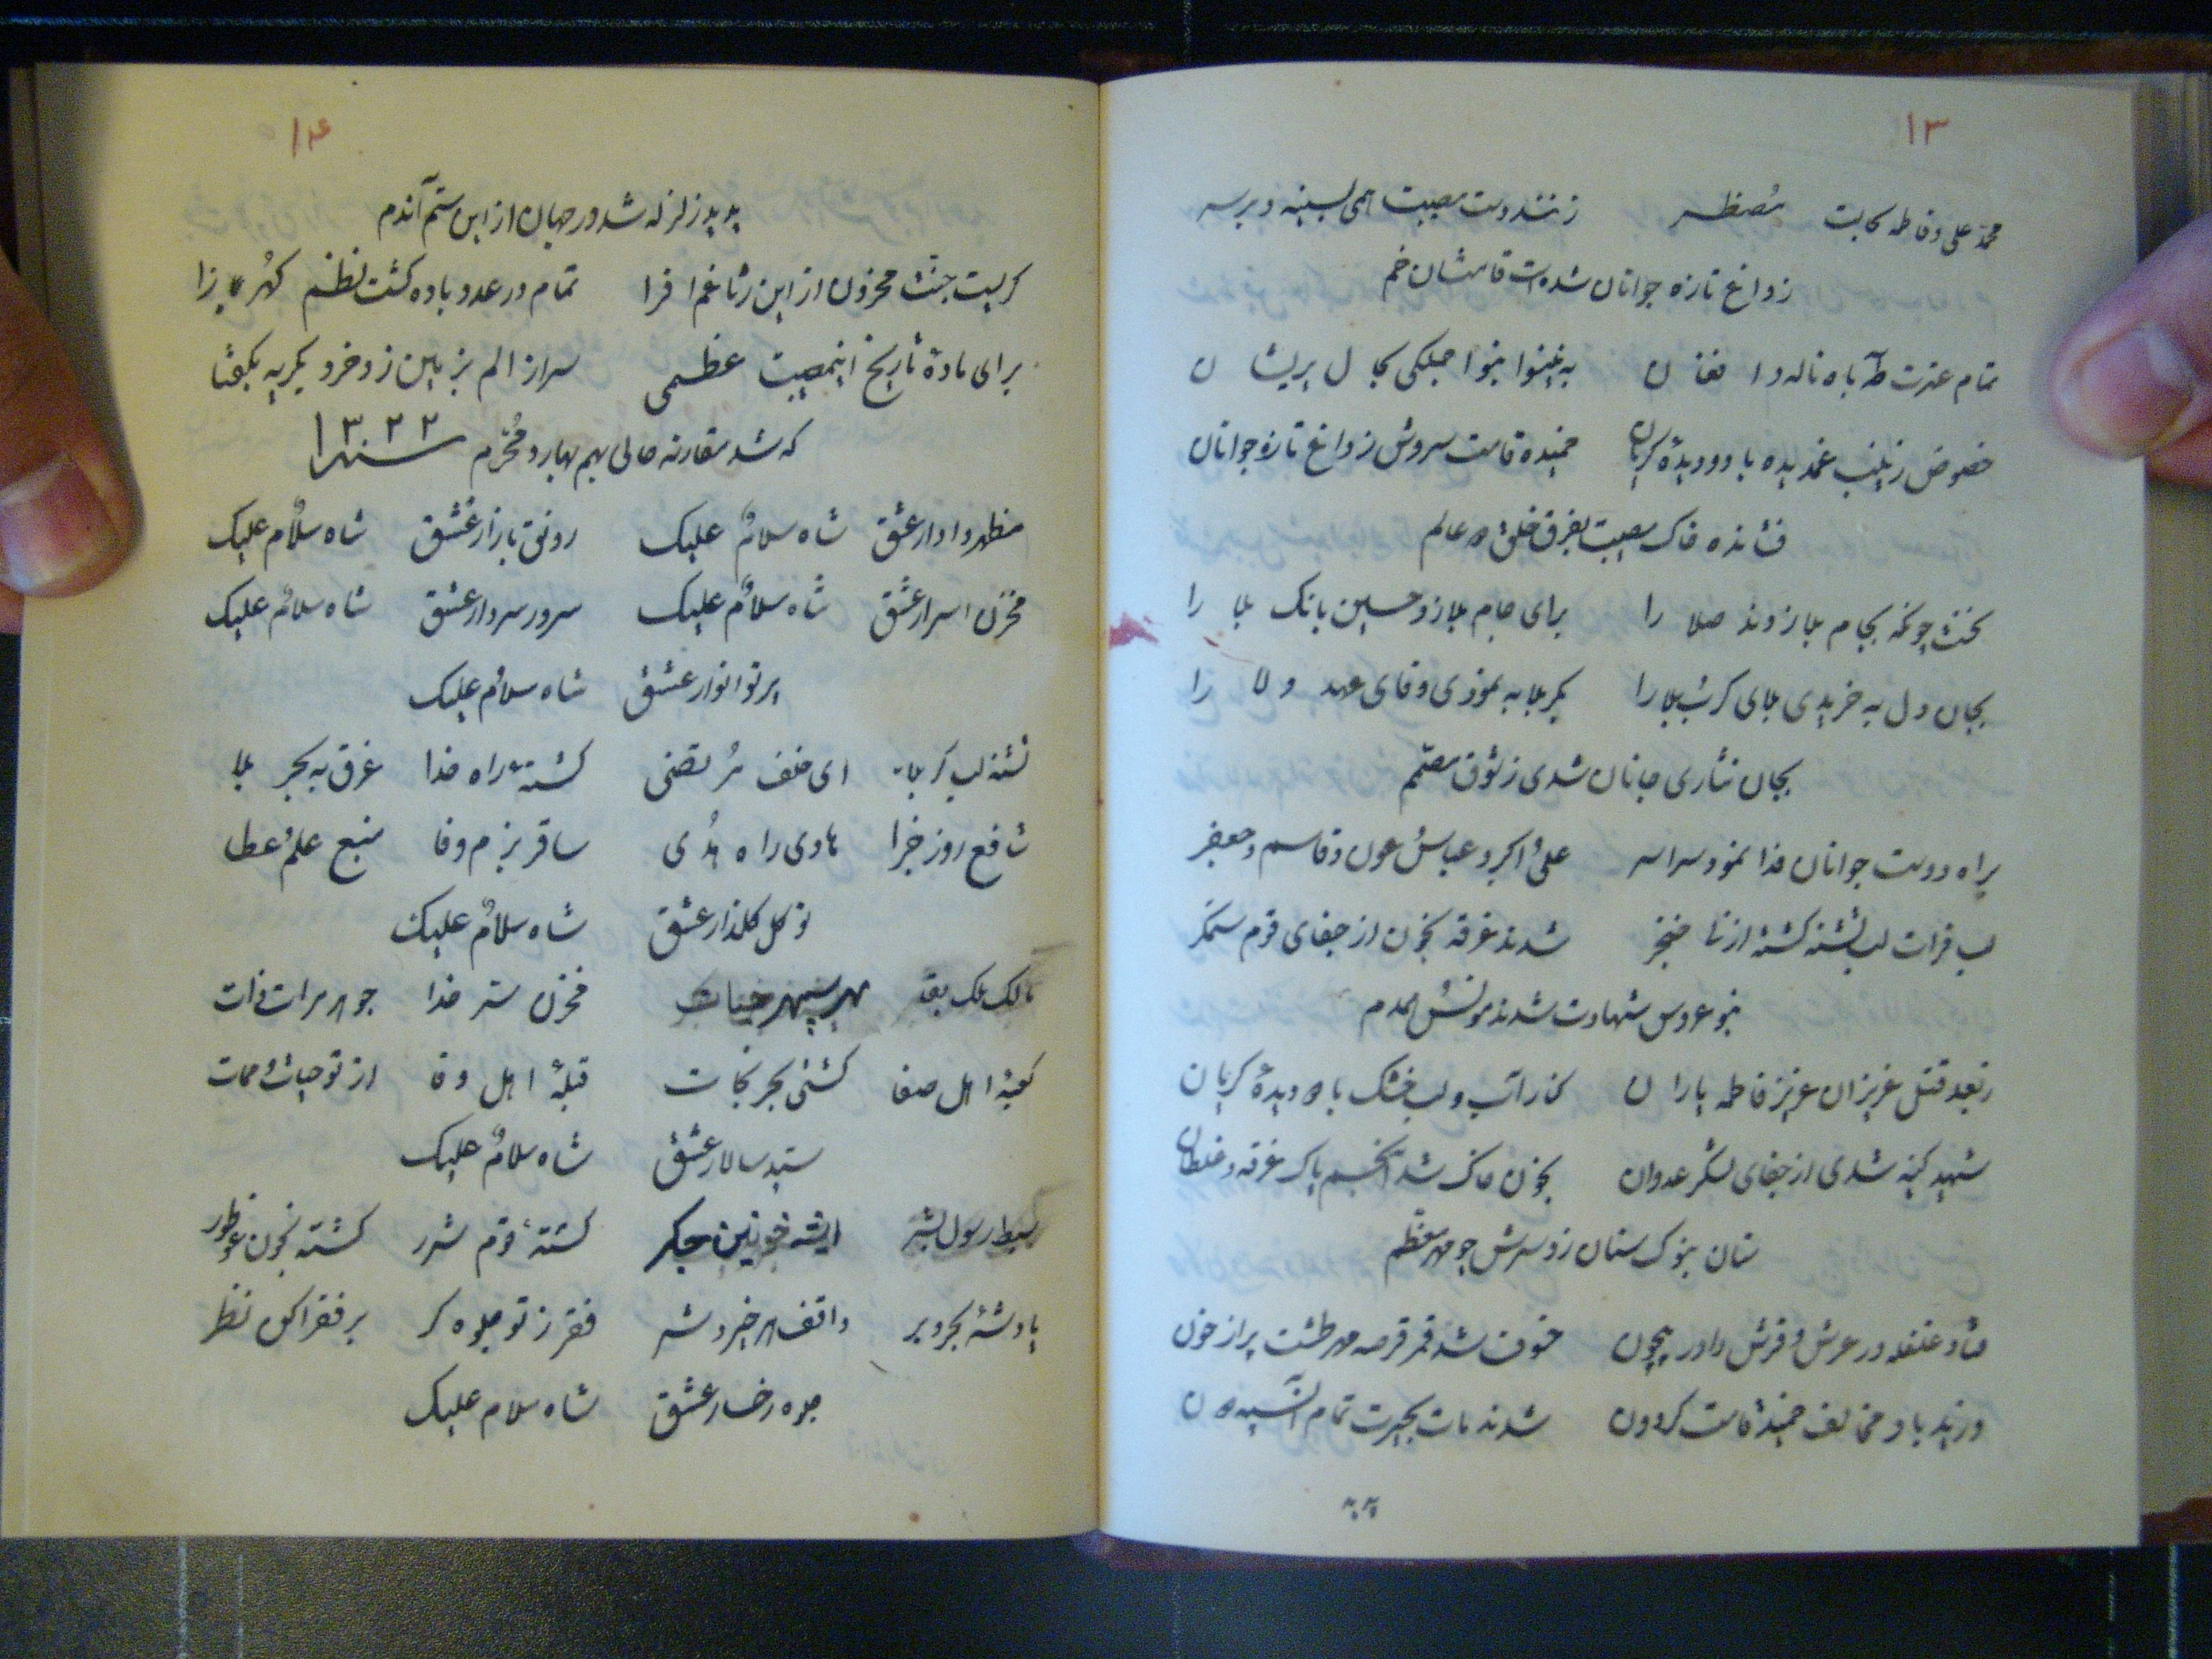 ۱۳
محمد علی و فاطمه بحالت مضطر زنند دست مصیبت همی بسینه و بر سر
ز داغ تازه جوانان شده است قامتشان خم
تمام عترت طه باه و ناله و افغان به نینوا بنوا جملگی بحال پریشان
خصوص زینب غمدیده با دو دیده گریان خمیده قامت سروش ز داغ تازه جوانان
فشانده خاک مصیبت بفرق خلق دو عالم
نخست چونکه بجام بلا زدند صلا را برای جام بلا زد حسین بانگ بلا را
بجان و دل به خریدی بلای کرب بلا را بکربلا به نمودی وفای عهد ولا را
بجان نثاری جانان شدی ز شوق مصمم
براه دوست جوانان فدا نمود سراسر علی اکبر و عباس عون و قاسم و جعفر
لب فرات لب تشنه کشته از خنجر شدند غرقه بخون از جفای قوم ستمگر
بنو عروس شهادت شدند مونس همدم
ز بعد قتل عزیزان عزیز فاطمه یاران کنار آب و لب خشک با دو دیده گریان
شهید کینه شدی از جفای لشکر عدوان بخون خاک شد آنجسم پاک غرقه و غلطان
سنان بنوک سنان زد سرش چو مهر معظم
فتاد غلغله در عرش و فرش داور بیچون خسوف شد قمر قرصه مهر طشت پر از خون
وزید باد مخالف خمید قامت گردون شدند مات بحیرت تمام
۱۴
پدید زلزله شد در جهان از این ستم آندم
گریست جنت محزون از این رثا غم افزا تمام در عدد یاده گشت نظم گهر زا
برای ماده تاریخ اینمصیبت عظمی سر از الم بزمین زد خرد بگریه بگفتا
که شد مقارنه حالی بهم بهار و محرم سنه ۱۳۲۲
مظهر دادار عشق شاه سلام علیک رونق بازار عشق شاه سلام علیک
مخزن اسرار عشق شاه سلام علیک سرور سردار عشق شاه سلام علیک
پرتو انوار عشق شاه سلام علیک
تشنه لب کربلا ای خلف مرتضی کشته راه خدا غرق به بحر بلا
شافع روز جزا هادی راه هدی ساقر بزم وفا منبع علم عطا
نو گل گلذار عشق شاه سلام علیک
مالک ملک بقا مهر سپهر حیات مخزن سر خدا جوهر مرات ذات
کعبه اهل صفا کشتی بحر نجات قبله اهل وفا از تو حیات و ممات
سید سالار عشق شاه سلام علیک
سبط رسول بشر ایشه خونین جگر کشته قوم شرر گشته بخون غوطه‌ور
پادشه بحر و بر واقف هر خیر و شر فقر ز تو جلوه گر بر فقرا کن نظر
جلوه رخسار عشق شاه سلام علیک